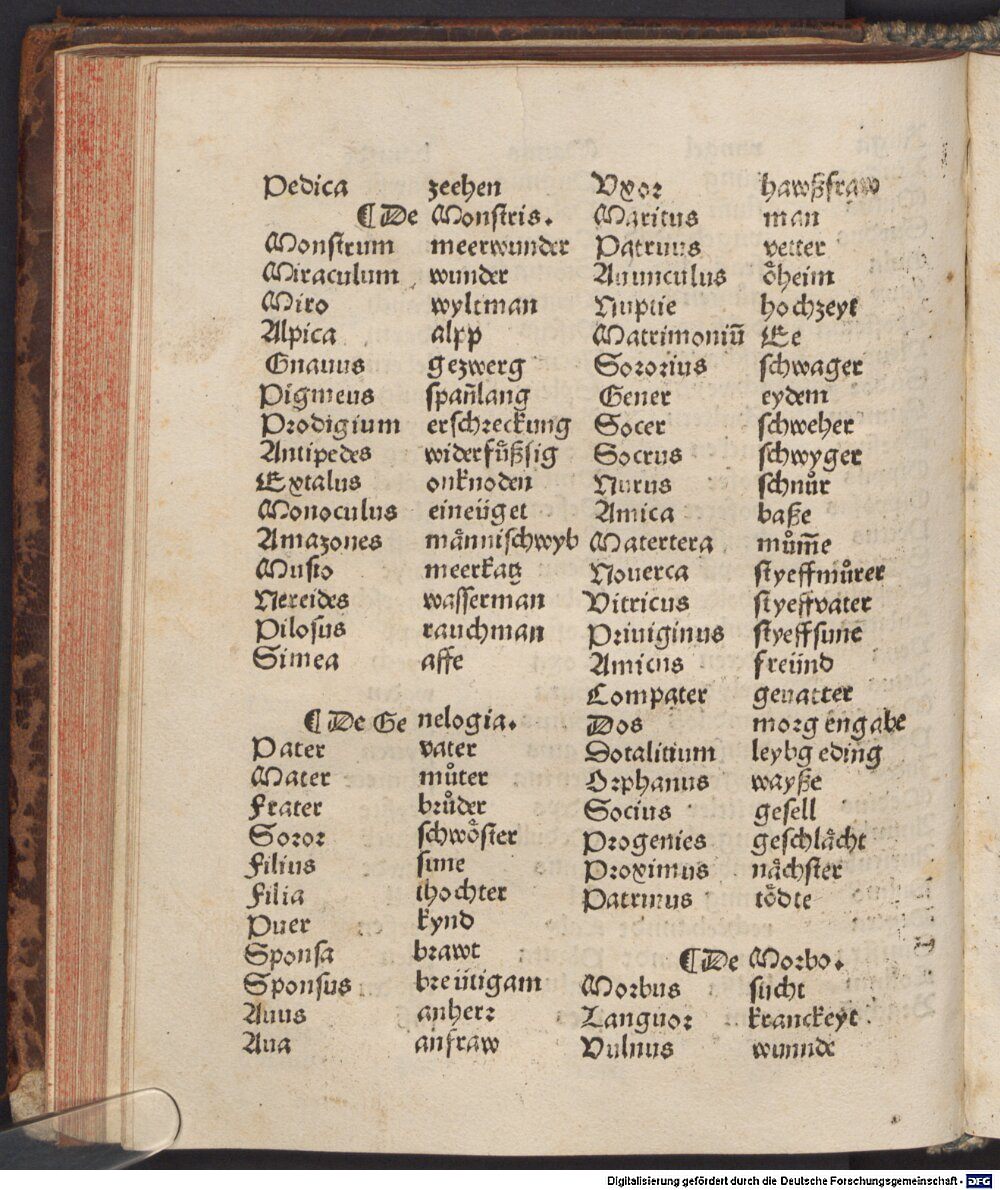 Pedica zeehen
⁋De Monstris.
Monstrum meerwunder
Miraculum wunder
Miro wyltman
Alpica alpp
Gnauus gezwerg
Pigmeus spañlang
Prodigium erschreckung
Antipedes widerfuͤßsig
Extalus onknoden
Monoculus eineüget
Amazones maͤnnischwyb
Musio meerkatz
Nereides wasserman
Pilosus rauchman
Simea affe
⁋De Ge nelogia.
Pater vater
Mater muͦter
Frater bruͦder
Soror schwoͤster
Filius sune
Filia thochter
Puer kynd
Sponsa brawt
Sponsus breütigam
Auus anherr
Aua anfraw
Vxor hawßfraw
Maritus man
Patruus vetter
Auunculus oͤheim
Nuptie hochzeyt
Matrimoniuͫ Ee
Sororius schwager
Gener eydem
Socer schweher
Socrus schwyger
Nurus schnuͦr
Amica baße
Matertera muͦm̄e
Nouerca styeffmuͦter
Vitricus styeffvater
Priuiginus styeffsune
Amicus freünd
Compater geuatter
Dos morgengabe
Dotalitium leybgeding
Orphanus wayße
Socius gesell
Progenies geschlaͤcht
Proximus naͤchster
Patrinus toͤdte
⁋De Morbo.
Morbus sücht
Languor kranckeyt
Vulnus wunnde
Digitalisierung gefördert durch die Deutsche Forschungsgemeinschaft - DFG